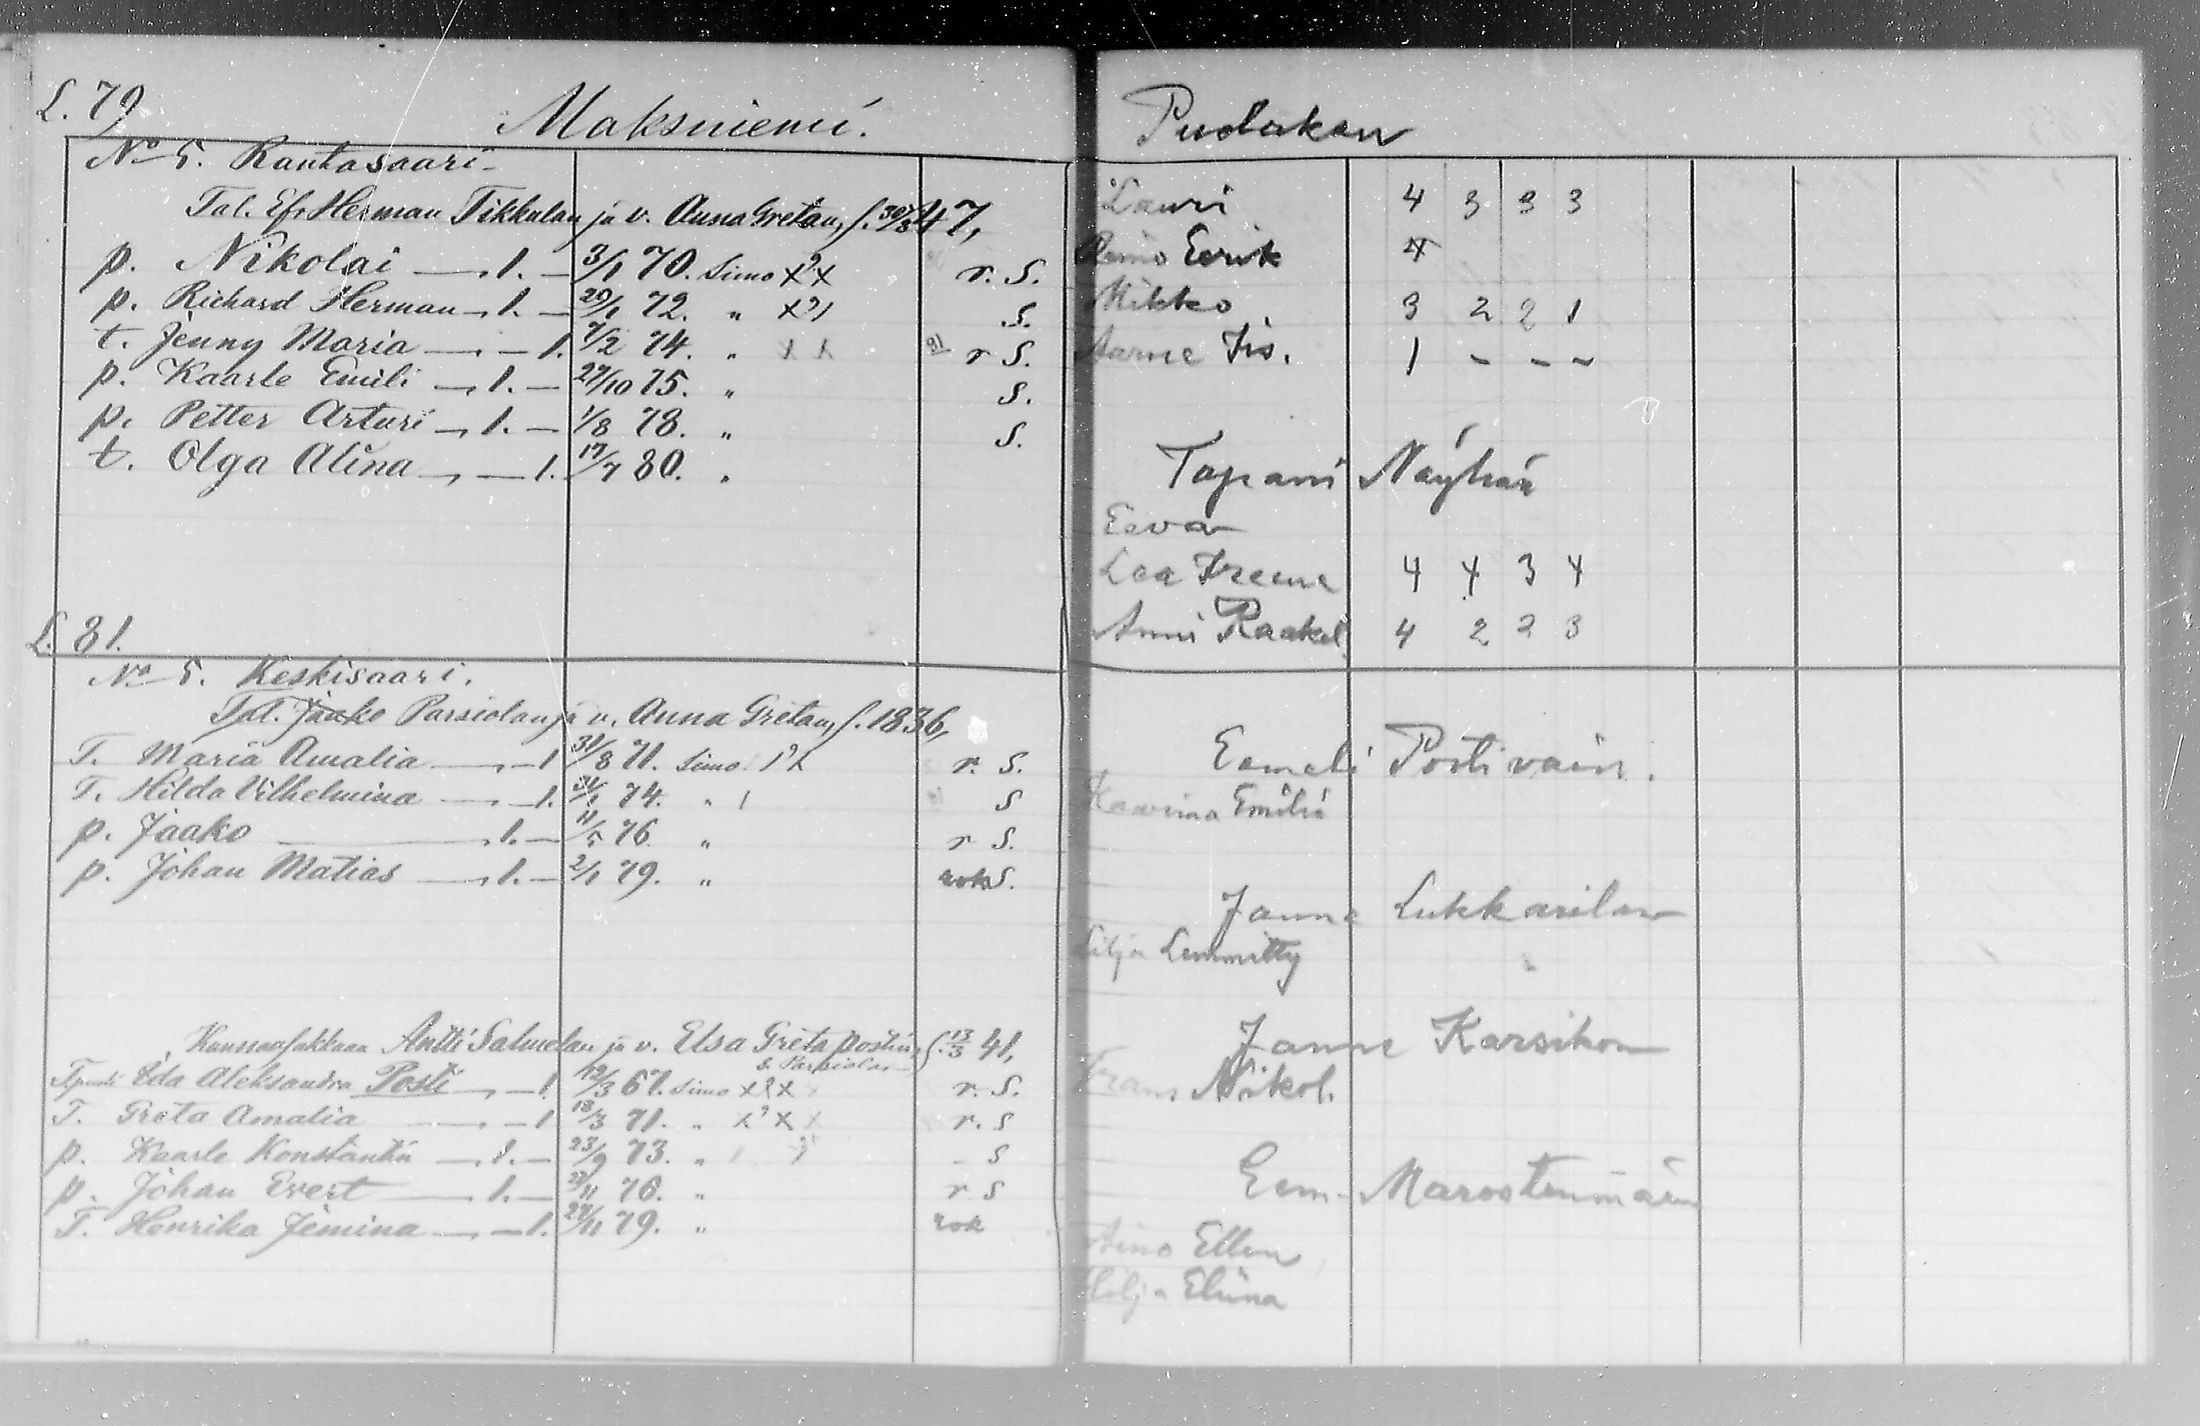 L. 79
Maksniemi.
No 5. Rantasaari.
Tal. Efr Herman Tikkalan ja v. Anna Gretan, s. 30/8 47,
p. Nikolai — 1. — 3/1 70. Simo x?x r. S.
p. Richard Herman 1. — 29/1 72. " x?1 S.
t. Jenny Maria — 1. 7/2 74. " x x 91 r S.
p. Kaarle Emili 1. — 27/10 75. " S.
p. Petter Arturi 1. — 1/8 78. " S.
t. Olga Alina — 1. 17/7 80. "
L. 81.
No 5. Keskisaari.
Tal. Jaako Parsiolan ja v. Anna Gretan, s. 1836,
T. Maria Amalia — 1 31/8 71. Simo 1?x r. S.
T. Hilda Vilhelmina — 1. 31/1 74. " 1 S
p. Jaako — 1. — 11/5 76. " r S.
p. Johan Matias — 1. — 2/1 79. " rok S.
Antti Salmelan ja v. Elsa Greta Postin, s. 13/3 41,
Ida Aleksandra Posti — 1. 12/3 67. Simo x?x r. S.
T. Greta Amalia — 1 18/3 71. " x?x x r. S
p. Kaarle Konstantin — 1. — 23/9 73. " 1 S
p. Johan Evert — 1. — 23/11 76. " r S
T. Henrika Jemina — 1. 27/11 79. " rok
Puolakan
Lauri 4 3 3 3
Reino Eerik 4
Mikko 3 2 2 1
Aarne Iis. 1 - - -
Tapani Näyhän
Eeva
Lea Ireene 4 4 3 4
Anni Raakel 4 2 2 3
Eemeli Posti vain.
Emilia
Janne Lukkarilan
Lilja Lemmitty
Janne Karsikon
Frans Nikol.
Eem. Marostenmäen
Aino Ellen
Hilja Eliina